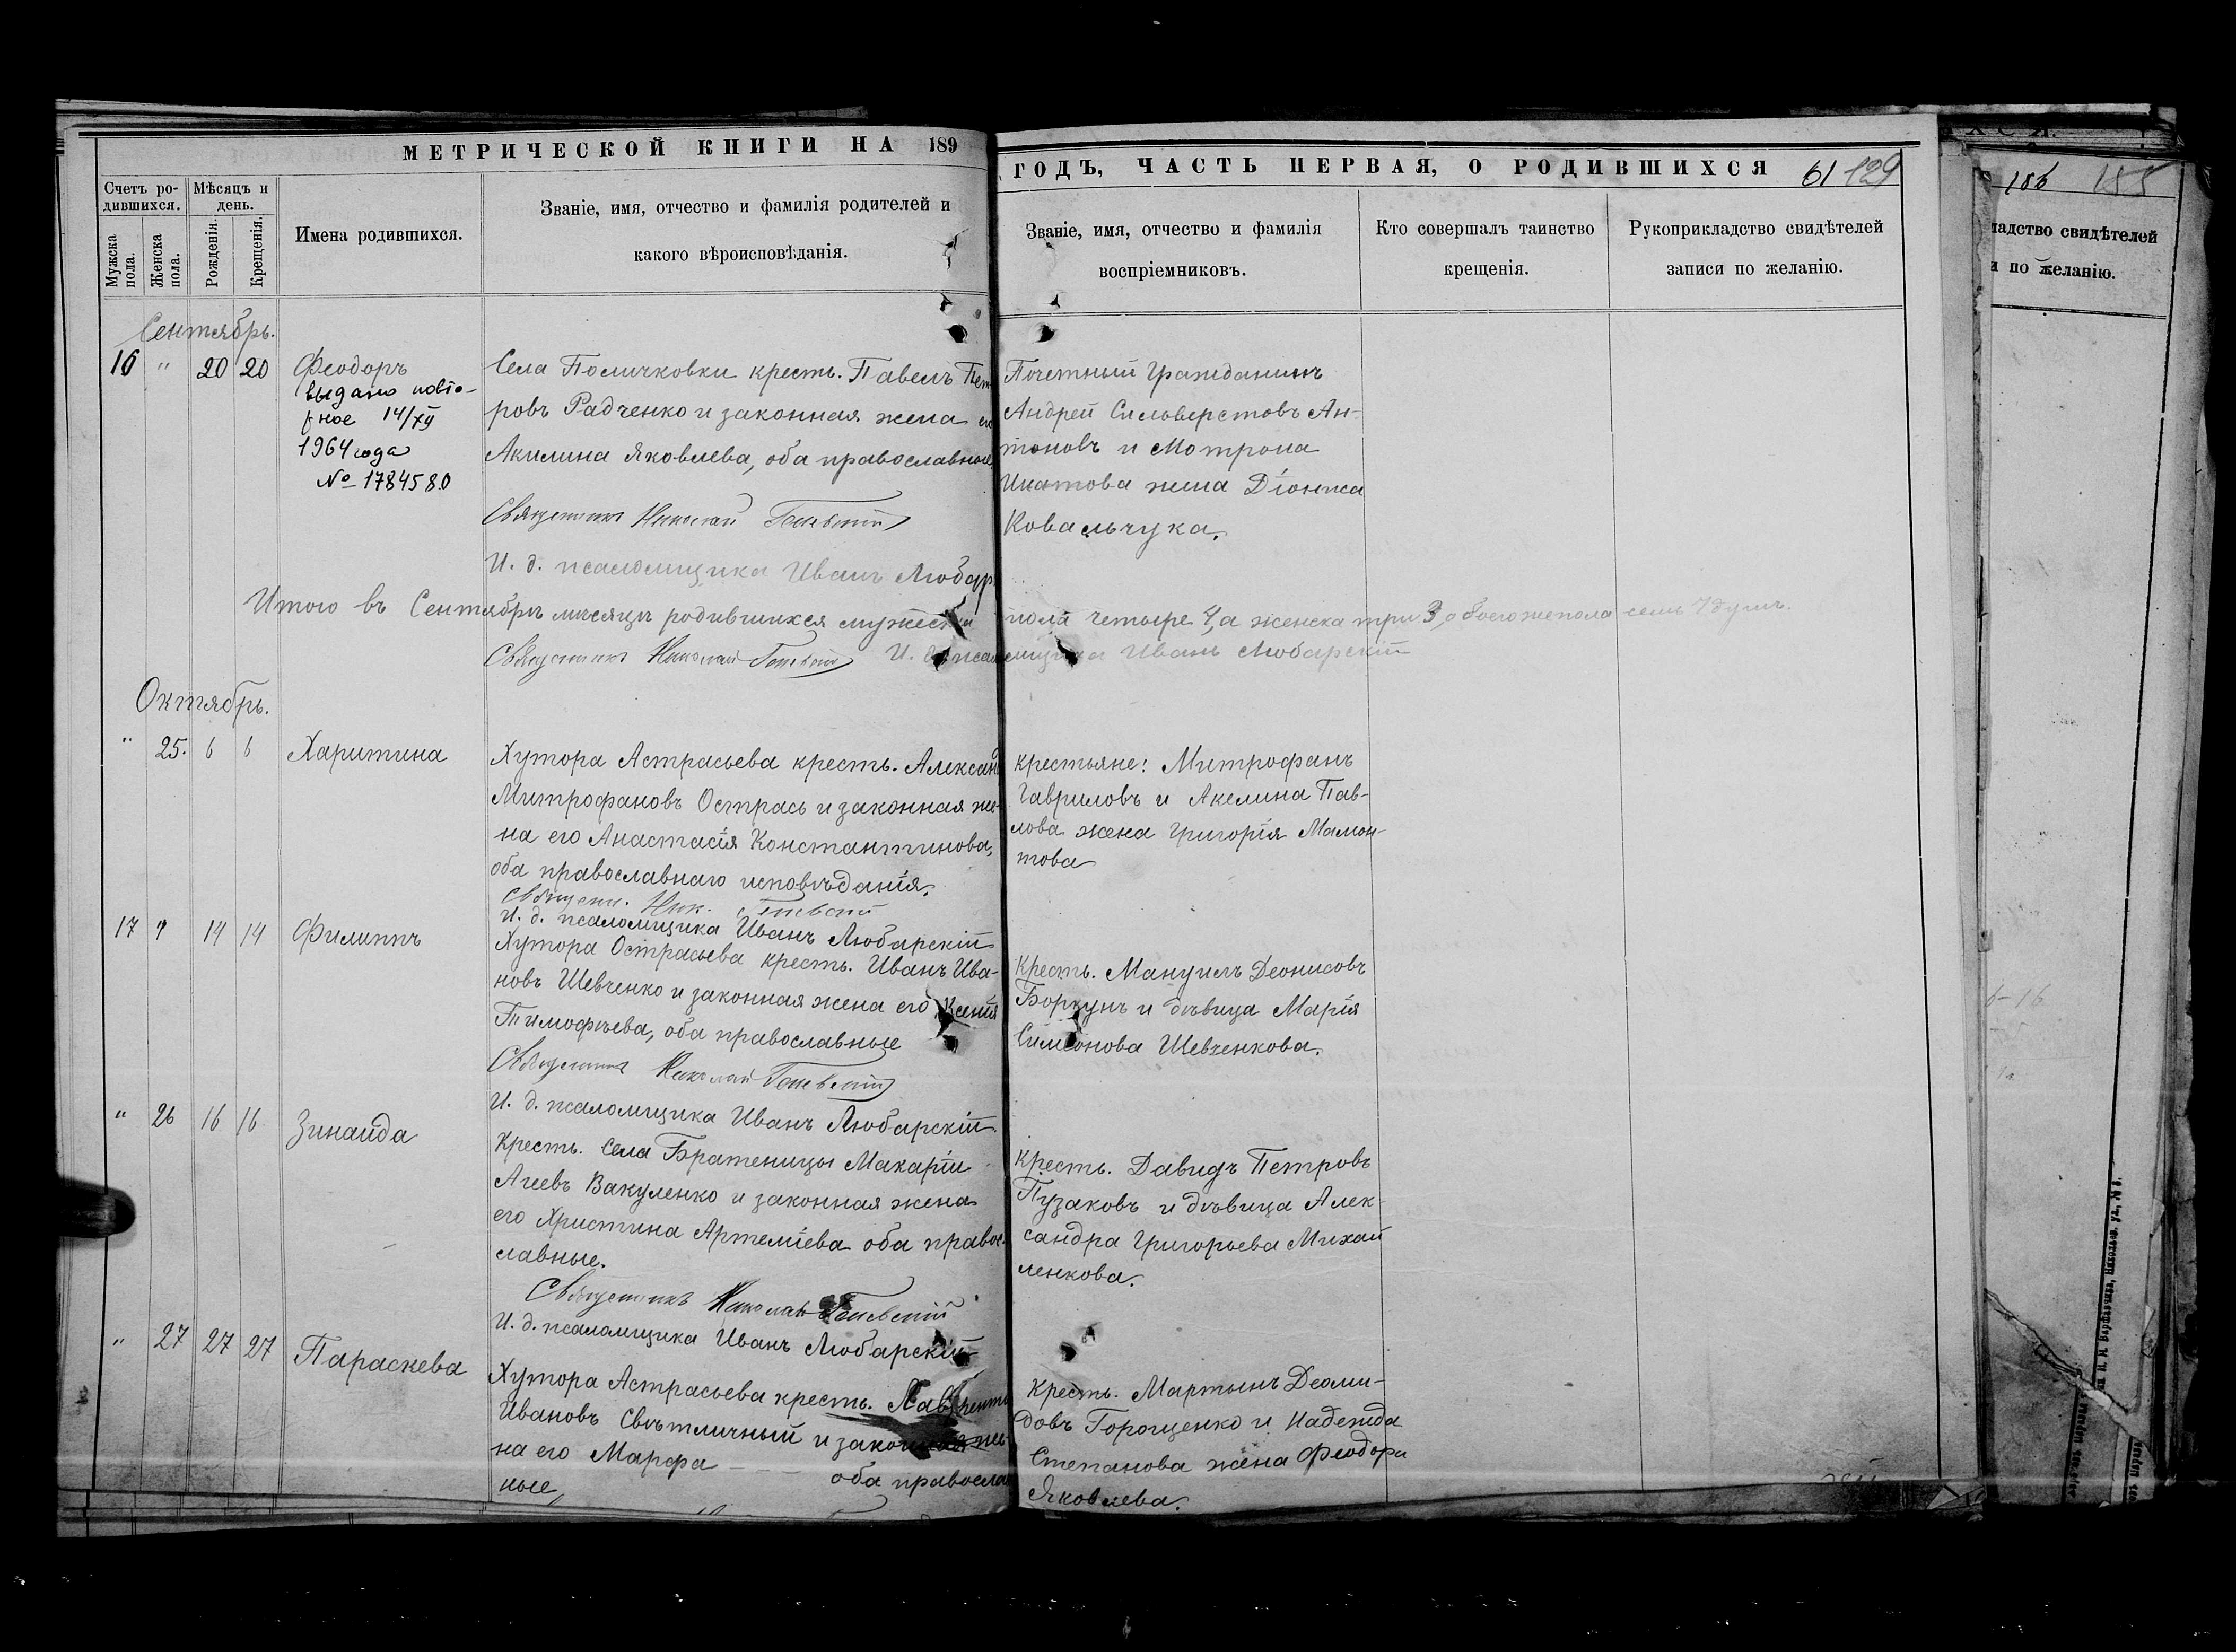 МЕТРИЧЕСКОЙ КНИГИ НА 189
ГОДЪ, ЧАСТЬ ПЕРВАЯ, О РОДИВШИХСЯ 61 129
Счетъ ро-
дившихся.
Мѣсяцъ и
день.
Мужска
пола.
Женска
пола.
Рожденія.
Крещенія.
Имена родившихся.
Званіе, имя, отчество и фамилія родителей и
какого вѣроисповѣданія.
Званіе, имя, отчество и фамилія
воспріемниковъ.
Кто совершалъ таинство
крещенія.
Рукоприкладство свидѣтелей
записи по желанію.
Сентябрь.
16 " 20 20 Феодоръ
выдано повто-
рное 14/XII
1964 года
№ 1784580
Села Поличковки кресть. Павелъ Пет
ровъ Радченко и законная жена
Акилина Яковлева, оба православные
Священникъ Николай
И. д. псаломщика Иванъ Любар
Почетный Гражданинъ
Андрей Сильверстовъ Ан-
тоновъ и Мотрона
жена Діониса
Ковальчука.
Итого въ Сентябрѣ мѣсяцѣ родившихся мужеска пола четыре 4, а женска три 3, обоего же пола семь 7 душъ.
Священникъ Николай И. д. псаломщика Иванъ Любарскій
Октябрь.
" 25. 6 6 Харитина
Хутора Астрасьева кресть. Александ
Митрофановъ Острась и законная же-
на его Анастасія Константинова,
оба православнаго исповѣданія.
Священ. Ник.
И. д. псаломщика Иванъ Любарскій
крестьяне: Митрофанъ
Гавриловъ и Акелина Пав-
лова жена Григорія Мамон-
това
17 " 14 14 Филиппъ
Хутора Острасьева кресть. Иванъ Ива-
новъ Шевченко и законная жена его Ксенія
Тимофѣева, оба православные
Священникъ Николай
И. д. псаломщика Иванъ Любарскій
Кресть. Мануилъ Деонисовъ
Боркунъ и дѣвица Марія
Симеонова Шевченкова.
" 26 16 16 Зинаида
Кресть. села Братеницы Макарій
Агеевъ Вакуленко и законная жена
его Христина Артеміева оба правос-
лавные.
Священникъ Николай
И. д. псаломщика Иванъ Любарскій
Кресть. Давидъ Петровъ
Пузаковъ и дѣвица Алек-
сандра Григорьева Михай
ленкова.
" 27 27 27 Параскева
Хутора Астрасьева кресть. Лаврентій
Ивановъ Свѣтличный и законная же
на его Марфа — — — оба правосла
ные
Кресть. Мартынъ Деоми-
довъ Горощенко и Надежда
Степанова жена Феодора
Яковлева.
186 185
ладство свидѣтелей
и по желанію.